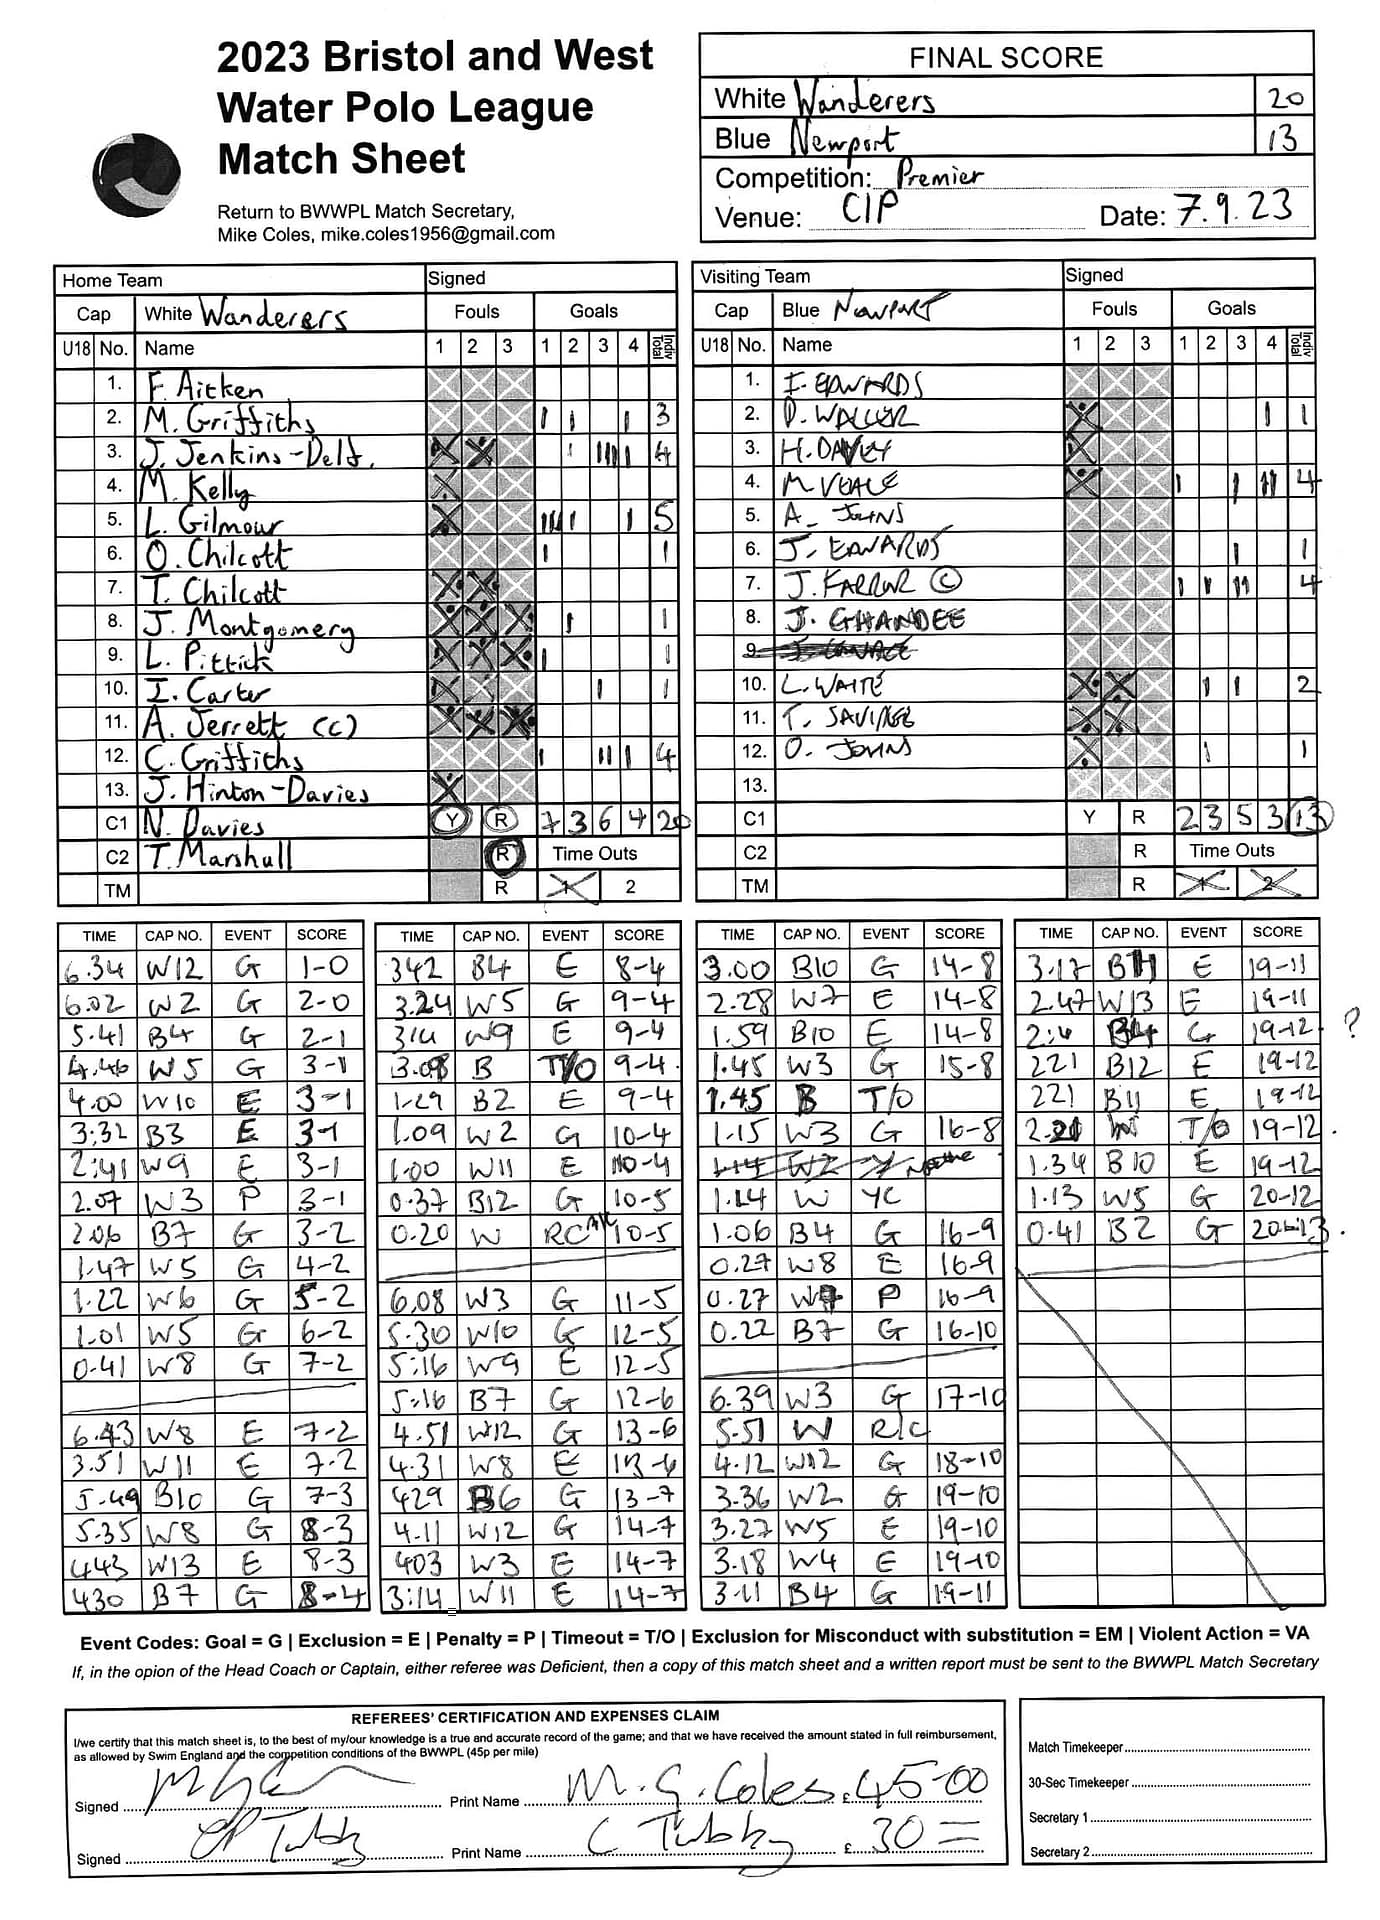 2023 Bristol and West
Water Polo League
Match Sheet
Return to BWWPL Match Secretary,
Mike Coles, mike.coles1956@gmail.com
FINAL SCORE
White Wanderers 20
Blue Newport 13
Competition: Premier
Venue: CIP Date: 7.9.23
Home Team Signed
Cap White Wanderers Fouls Goals
U18 No. Name 1 2 3 1 2 3 4 Indiv Total
1. F. Aitken
2. M. Griffiths 3
3. J. Jenkins-Delf. 4
4. M. Kelly
5. L. Gilmour 5
6. O. Chilcott 1
7. T. Chilcott
8. J. Montgomery 1
9. L. Pittick 1
10. I. Carter 1
11. A. Jerrett (c)
12. C. Griffiths 4
13. J. Hinton-Davies
C1 N. Davies Y R 7 3 6 4 20
C2 T. Marshall R Time Outs
TM R 1 2
Visiting Team Signed
Cap Blue Newport Fouls Goals
U18 No. Name 1 2 3 1 2 3 4 Indiv Total
1. I. EDWARDS
2. D. WALLER 1
3. H. DAVEY
4. M VEALE 4
5. A. JOHNS
6. J. EDWARDS 1
7. J. FARROR © 4
8. J. GHANDEE
9.
10. L. WAITE 2
11. T. SAVIDGE
12. O. JOHNS 1
13.
C1 Y R 2 3 5 3 13
C2 R Time Outs
TM R 1 2
TIME CAP NO. EVENT SCORE
6.34 W12 G 1-0
6.02 W2 G 2-0
5.41 B4 G 2-1
4.46 W5 G 3-1
4.00 W10 E 3-1
3:32 B3 E 3-1
2:41 W9 E 3-1
2.07 W3 P 3-1
2.06 B7 G 3-2
1.47 W5 G 4-2
1.22 W6 G 5-2
1.01 W5 G 6-2
0.41 W8 G 7-2
6.43 W8 E 7-2
3.51 W11 E 7-2
5.49 B10 G 7-3
5.35 W8 G 8-3
443 W13 E 8-3
430 B7 G 8-4
TIME CAP NO. EVENT SCORE
342 B4 E 8-4
3.24 W5 G 9-4
314 W9 E 9-4
3.08 B T/O 9-4
1.29 B2 E 9-4
1.09 W2 G 10-4
1.00 W11 E 10-4
0.37 B12 G 10-5
0.20 W RC 10-5
6.08 W3 G 11-5
5.30 W10 G 12-5
5:16 W9 E 12-5
5:16 B7 G 12-6
4.51 W12 G 13-6
4.31 W8 E 13-6
429 B6 G 13-7
4.11 W12 G 14-7
403 W3 E 14-7
3:14 W11 E 14-7
TIME CAP NO. EVENT SCORE
3.00 B10 G 14-8
2.28 W7 E 14-8
1.59 B10 E 14-8
1.45 W3 G 15-8
1.45 B T/O
1.15 W3 G 16-8
1.14 W YC
1.06 B4 G 16-9
0.27 W8 E 16-9
0.27 P 16-9
0.22 B7 G 16-10
6.39 W3 G 17-10
5.51 W R/C
4.12 W12 G 18-10
3.36 W2 G 19-10
3.27 W5 E 19-10
3.18 W4 E 19-10
3.11 B4 G 19-11
TIME CAP NO. EVENT SCORE
3.17 B11 E 19-11
2.47 W13 E 19-11
B4 G 19-12 ?
221 B12 E 19-12
221 B11 E 19-12
W T/O 19-12.
1.34 B10 E 19-12
1.13 W5 G 20-12
0.41 B2 G 20-13.
Event Codes: Goal = G | Exclusion = E | Penalty = P | Timeout = T/O | Exclusion for Misconduct with substitution = EM | Violent Action = VA
If, in the opion of the Head Coach or Captain, either referee was Deficient, then a copy of this match sheet and a written report must be sent to the BWWPL Match Secretary
REFEREES' CERTIFICATION AND EXPENSES CLAIM
I/we certify that this match sheet is, to the best of my/our knowledge is a true and accurate record of the game; and that we have received the amount stated in full reimbursement,
as allowed by Swim England and the competition conditions of the BWWPL (45p per mile)
Signed Print Name M. G. Coles £ 45-00
Signed CP Tubby Print Name C Tubby £ 30 =
Match Timekeeper
30-Sec Timekeeper
Secretary 1
Secretary 2